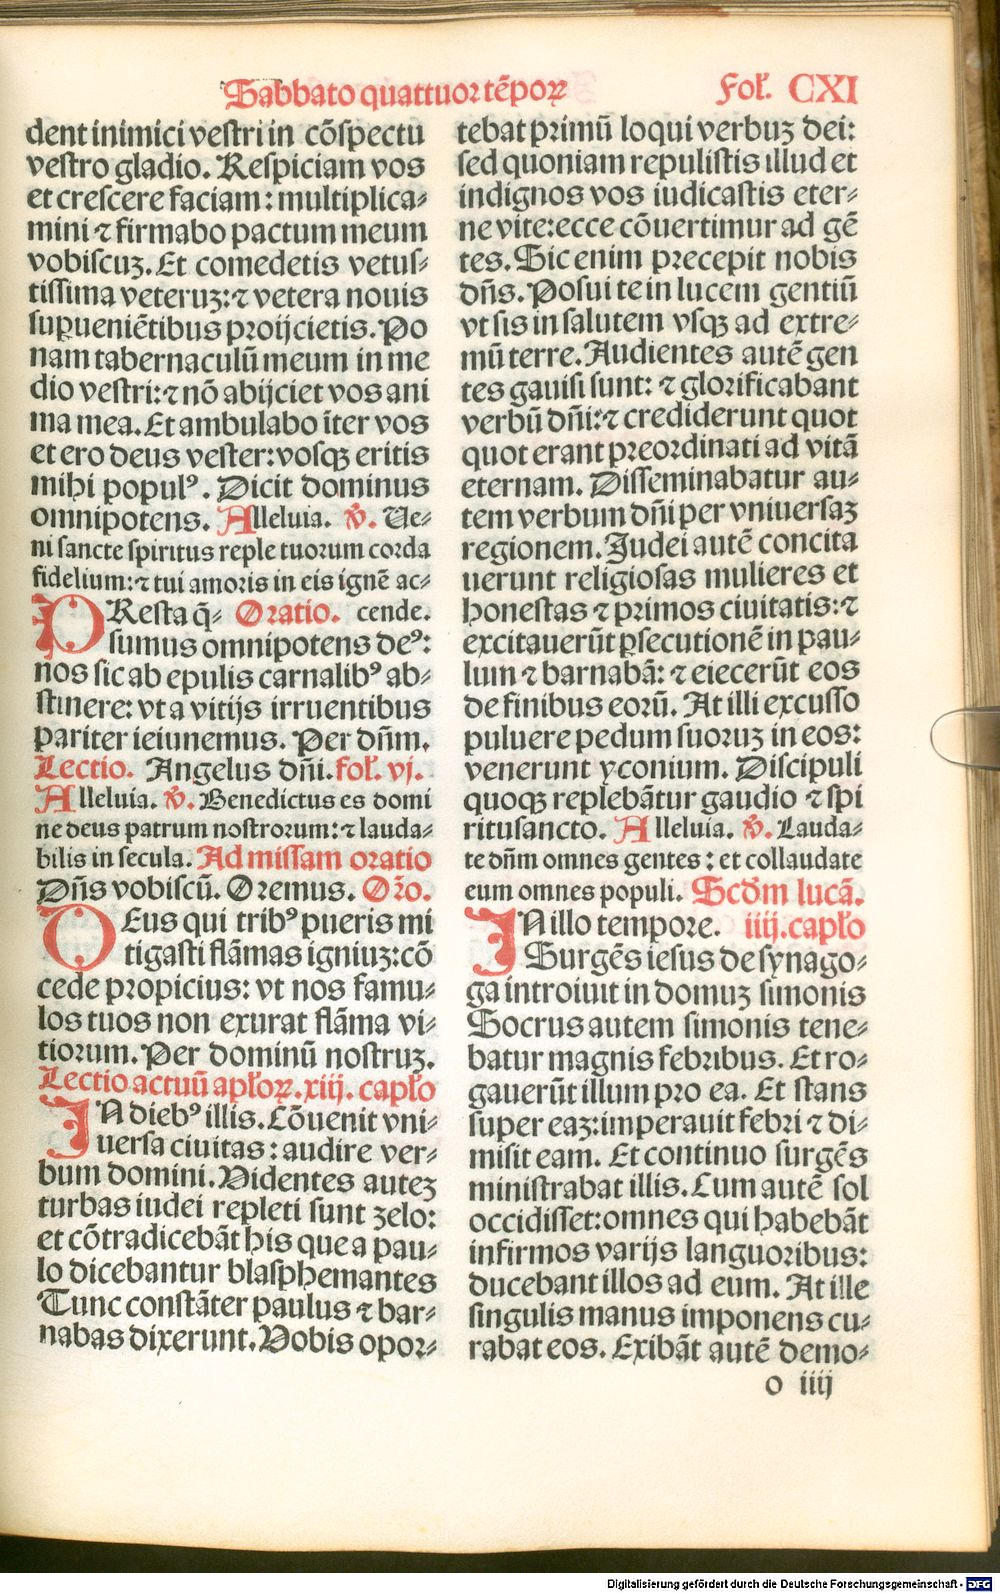 Sabbato quattuor tēporꝝ Fol. CXI
dent inimici vestri in cōspectu
vestro gladio. Respiciam vos
et crescere faciam: multiplica⸗
mini ⁊ firmabo pactum meum
vobiscuꝫ. Et comedetis vetus⸗
tissima veteruꝫ: ⁊ vetera nouis
suꝑueniētibus proijcietis. Po
nam tabernaculū meum in me
dio vestri: ⁊ nō abijciet vos ani
ma mea. Et ambulabo īter vos
et ero deus vester: vosqꝫ eritis
mihi populꝰ. Dicit dominus
omnipotens. Alleluia. ℣. Ue⸗
ni sancte spiritus reple tuorum corda
fidelium: ⁊ tui amoris in eis ignē ac⸗
PResta q̄⸗ Oratio. cende.
sumus omnipotens deꝰ:
nos sic ab epulis carnalibꝰ ab⸗
stinere: vt a vitijs irruentibus
pariter ieiunemus. Per dn̄m.
Lectio. Angelus dn̄i. fol. vj.
Alleluia. ℣. Benedictus es domi
ne deus patrum nostrorum: ⁊ lauda⸗
bilis in secula. Ad missam oratio
Dn̄s vobiscū. Oremus. Or̄o.
DEus qui tribꝰ pueris mi
tigasti flāmas igniuꝫ: cō
cede propicius: vt nos famu⸗
los tuos non exurat flāma vi⸗
tiorum. Per dominū nostruꝫ.
Lectio actuū apl̄orꝝ. xiij. capl̄o
IN diebꝰ illis. Cōuenit vni⸗
uersa ciuitas: audire ver⸗
bum domini. Videntes auteꝫ
turbas iudei repleti sunt zelo:
et cōtradicebāt his que a pau⸗
lo dicebantur blasphemantes
Tunc constāter paulus ⁊ bar⸗
nabas dixerunt. Vobis opor⸗
tebat primū loqui verbuꝫ dei:
sed quoniam repulistis illud et
indignos vos iudicastis eter⸗
ne vite: ecce cōuertimur ad gē
tes. Sic enim precepit nobis
dn̄s. Posui te in lucem gentiū
vt sis in salutem vsqꝫ ad extre⸗
mū terre. Audientes autē gen
tes gauisi sunt: ⁊ glorificabant
verbū dn̄i: ⁊ crediderunt quot
quot erant preordinati ad vitā
eternam. Disseminabatur au⸗
tem verbum dn̄i per vniuersaꝫ
regionem. Iudei autē concita
uerunt religiosas mulieres et
honestas ⁊ primos ciuitatis: ⁊
excitauerūt ꝑsecutionē in pau⸗
lum ⁊ barnabā: ⁊ eiecerūt eos
de finibus eorū. At illi excusso
puluere pedum suoruꝫ in eos:
venerunt yconium. Discipuli
quoqꝫ replebātur gaudio ⁊ spi
ritusancto. Alleluia. ℣. Lauda⸗
te dn̄m omnes gentes: et collaudate
eum omnes populi. Scd̄m lucā.
IN illo tempore. iiij. capl̄o
Surgēs iesus de synago⸗
ga introiuit in domuꝫ simonis
Socrus autem simonis tene⸗
batur magnis febribus. Et ro⸗
gauerūt illum pro ea. Et stans
super eaꝫ: imperauit febri ⁊ di⸗
misit eam. Et continuo surgēs
ministrabat illis. Cum autē sol
occidisset: omnes qui habebāt
infirmos varijs languoribus:
ducebant illos ad eum. At ille
singulis manus imponens cu⸗
rabat eos. Exibāt autē demo⸗
o iiij
Digitalisierung gefördert durch die Deutsche Forschungsgemeinschaft - DFG